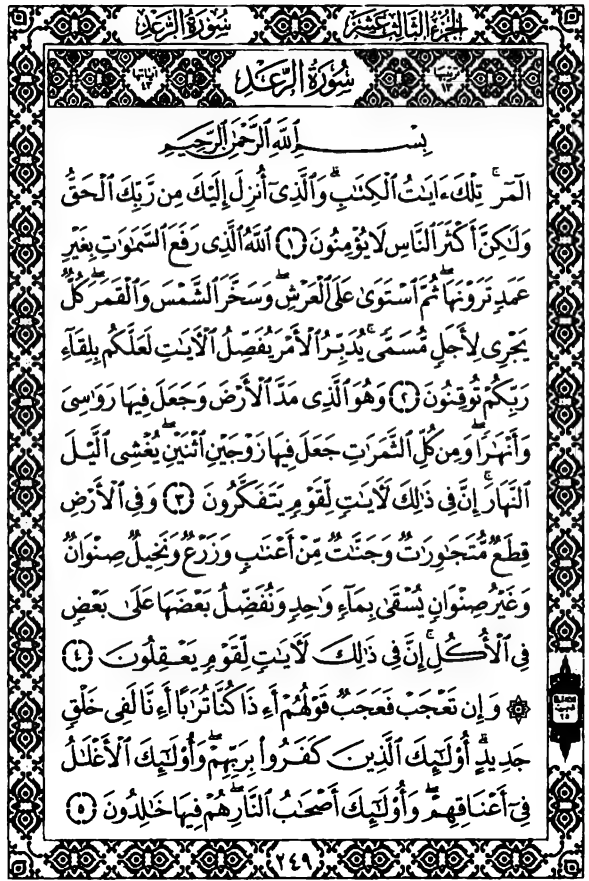 سُورَةُ الرَّعْدِ الجُزءُ الثَّالِثَ عَشَر
سُورَةُ الرَّعْدِ
بِسْمِ ٱللَّهِ ٱلرَّحْمَٰنِ ٱلرَّحِيمِ
الٓمٓر ۚ تِلْكَ ءَايَٰتُ ٱلْكِتَٰبِ ۗ وَٱلَّذِىٓ أُنزِلَ إِلَيْكَ مِن رَّبِّكَ ٱلْحَقُّ
وَلَٰكِنَّ أَكْثَرَ ٱلنَّاسِ لَا يُؤْمِنُونَ ١ ٱللَّهُ ٱلَّذِى رَفَعَ ٱلسَّمَٰوَٰتِ بِغَيْرِ
عَمَدٍ تَرَوْنَهَا ۖ ثُمَّ ٱسْتَوَىٰ عَلَى ٱلْعَرْشِ ۖ وَسَخَّرَ ٱلشَّمْسَ وَٱلْقَمَرَ ۖ كُلٌّ
يَجْرِى لِأَجَلٍ مُّسَمًّى ۚ يُدَبِّرُ ٱلْأَمْرَ يُفَصِّلُ ٱلْءَايَٰتِ لَعَلَّكُم بِلِقَآءِ
رَبِّكُمْ تُوقِنُونَ ٢ وَهُوَ ٱلَّذِى مَدَّ ٱلْأَرْضَ وَجَعَلَ فِيهَا رَوَٰسِىَ
وَأَنْهَٰرًا ۖ وَمِن كُلِّ ٱلثَّمَرَٰتِ جَعَلَ فِيهَا زَوْجَيْنِ ٱثْنَيْنِ ۖ يُغْشِى ٱلَّيْلَ
ٱلنَّهَارَ ۚ إِنَّ فِى ذَٰلِكَ لَءَايَٰتٍ لِّقَوْمٍ يَتَفَكَّرُونَ ٣ وَفِى ٱلْأَرْضِ
قِطَعٌ مُّتَجَٰوِرَٰتٌ وَجَنَّٰتٌ مِّنْ أَعْنَٰبٍ وَزَرْعٌ وَنَخِيلٌ صِنْوَانٌ
وَغَيْرُ صِنْوَانٍ يُسْقَىٰ بِمَآءٍ وَٰحِدٍ وَنُفَضِّلُ بَعْضَهَا عَلَىٰ بَعْضٍ
فِى ٱلْأُكُلِ ۚ إِنَّ فِى ذَٰلِكَ لَءَايَٰتٍ لِّقَوْمٍ يَعْقِلُونَ ٤
۞ وَإِن تَعْجَبْ فَعَجَبٌ قَوْلُهُمْ أَءِذَا كُنَّا تُرَٰبًا أَءِنَّا لَفِى خَلْقٍ
جَدِيدٍ ۗ أُو۟لَٰٓئِكَ ٱلَّذِينَ كَفَرُوا۟ بِرَبِّهِمْ ۖ وَأُو۟لَٰٓئِكَ ٱلْأَغْلَٰلُ
فِىٓ أَعْنَاقِهِمْ ۖ وَأُو۟لَٰٓئِكَ أَصْحَٰبُ ٱلنَّارِ ۖ هُمْ فِيهَا خَٰلِدُونَ ٥
٢٤٩